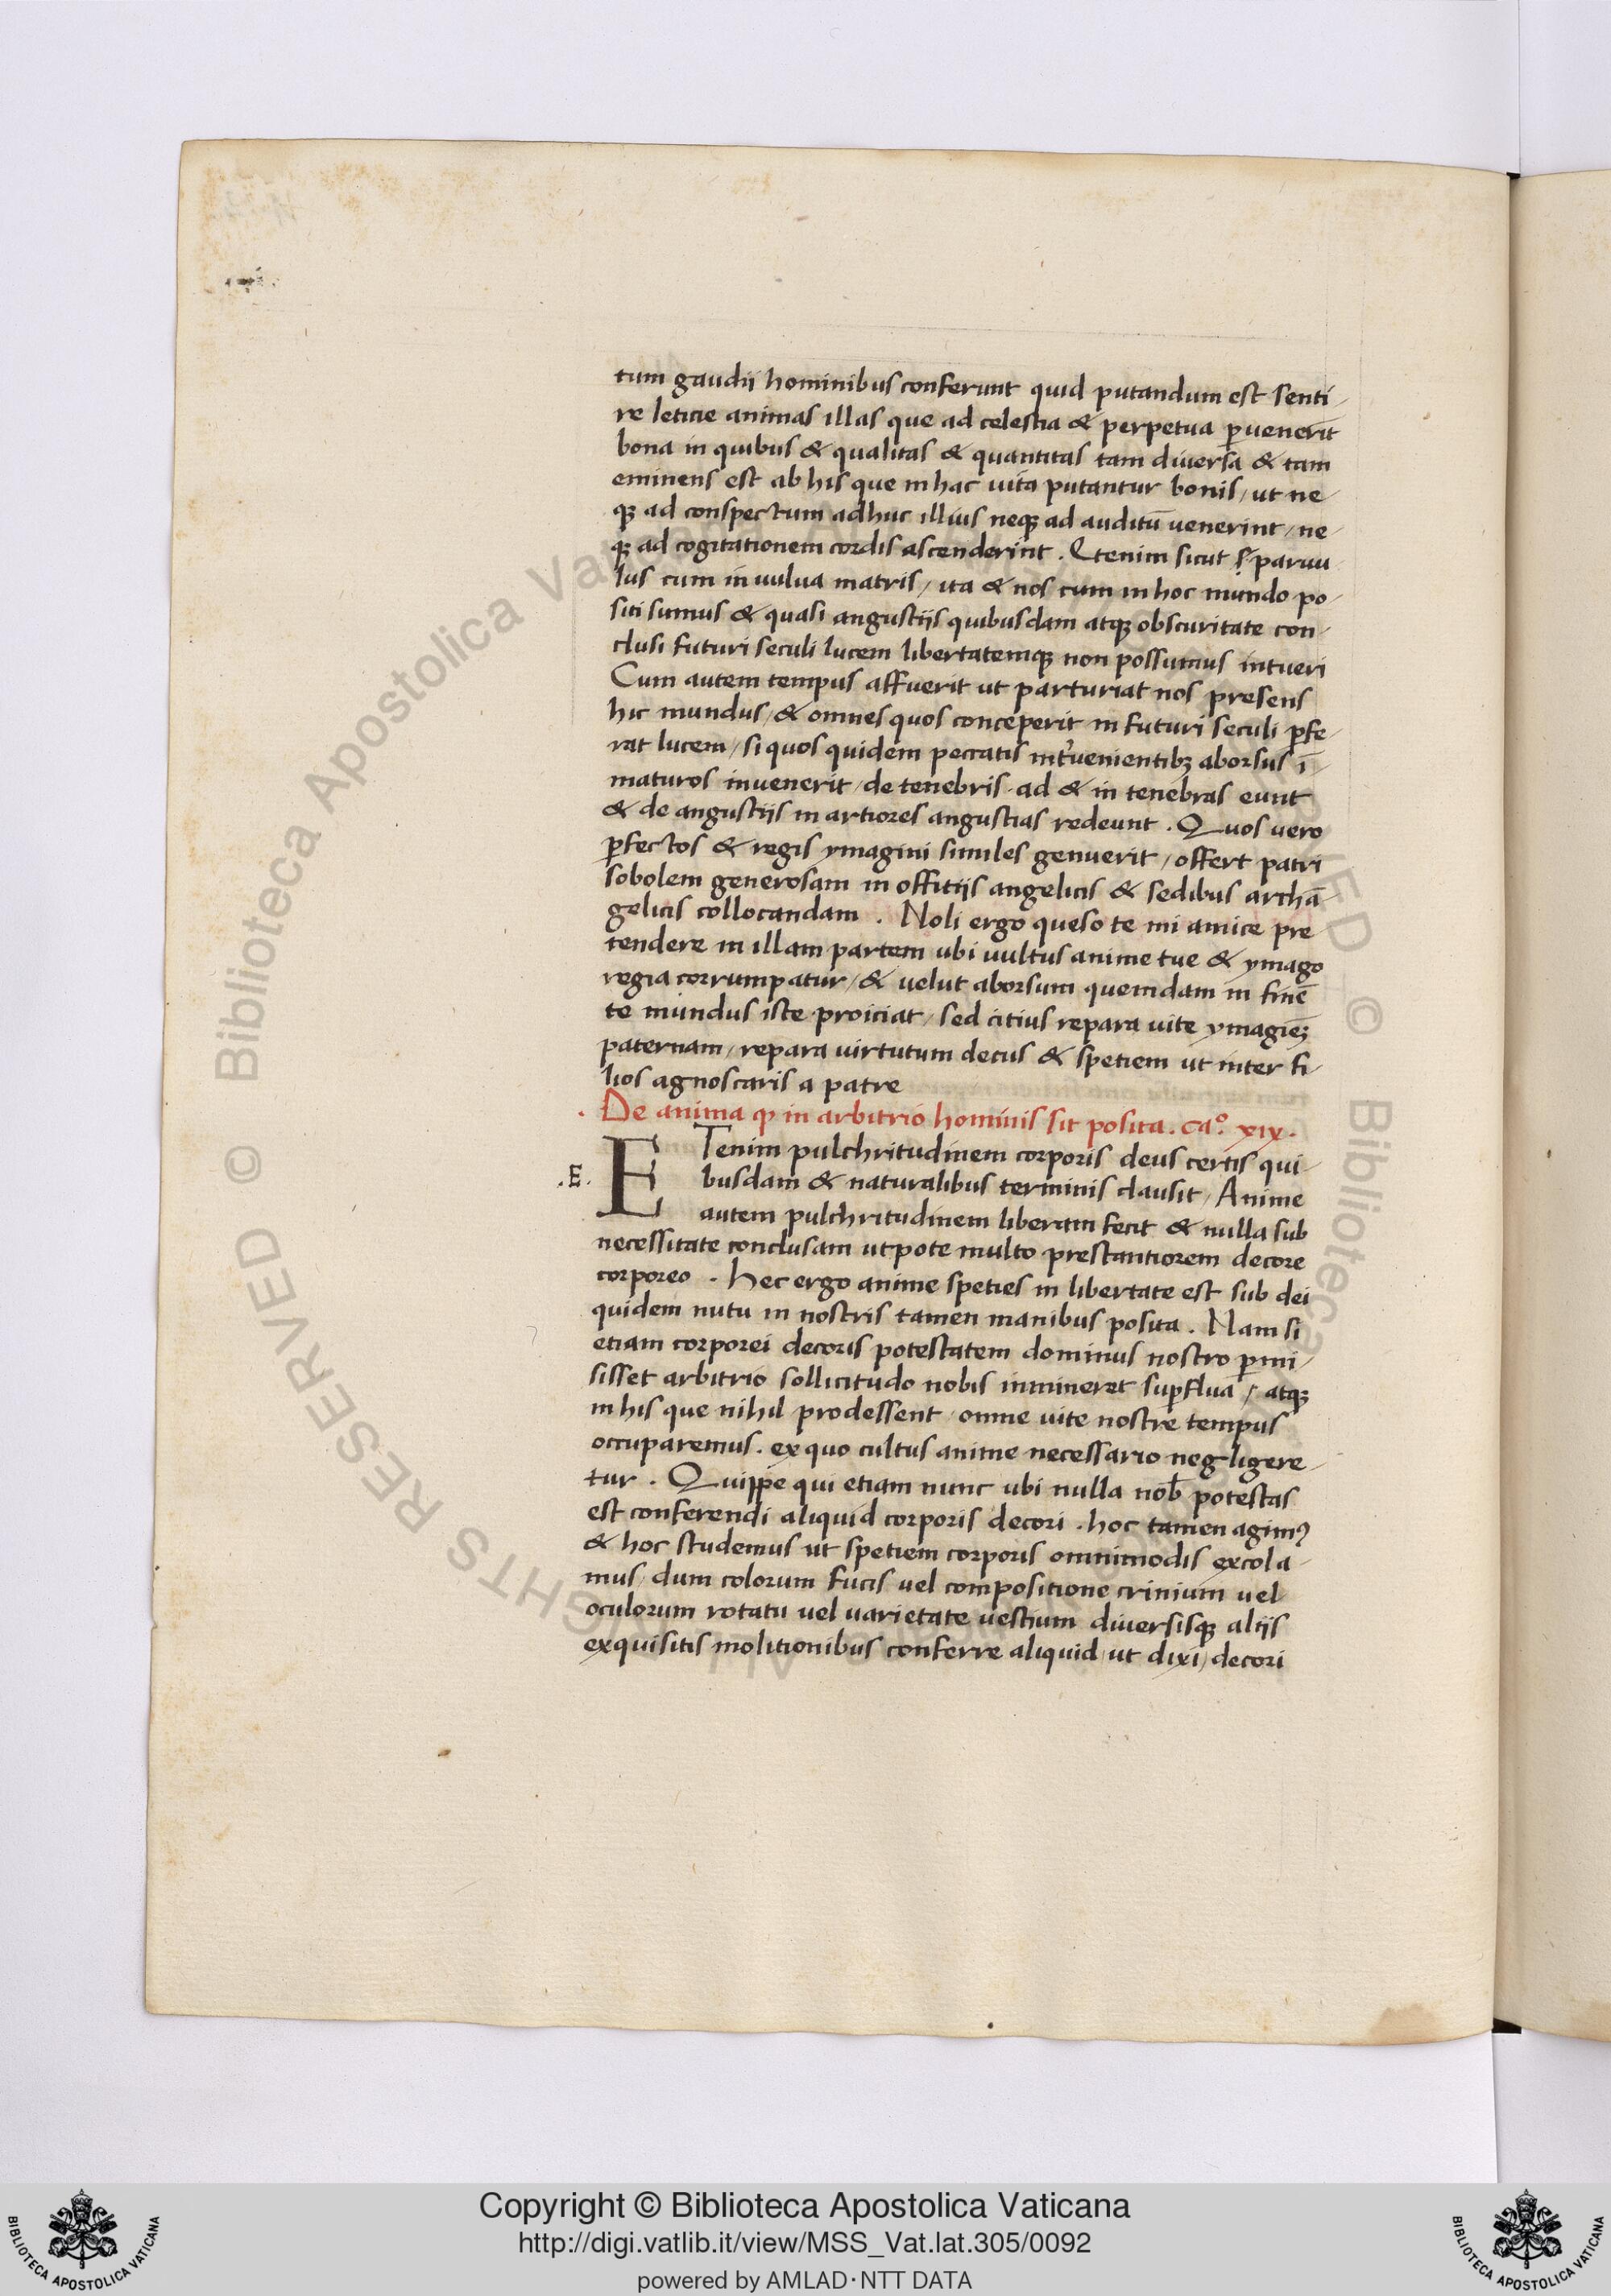 tum gaudii hominibus conferunt quid putandum est senti-
re leticie animas illas que ad celestia & perpetua ꝑuenerīt
bona in quibus & qualitas & quantitas tam diuersa & tam
eminens est ab his que in hac uita putantur bonis / ut ne-
qꝫ ad conspectum adhuc illius neqꝫ ad auditū uenerint / ne-
qꝫ ad cogitationem cordis ascenderint . Etenim sicut paruu
lus cum in uulua matris / ita & nos cum in hoc mundo po-
siti sumus & quasi angustijs quibusdam atqꝫ obscuritate con-
clusi futuri seculi lucem libertatemqꝫ non possumus intueri
Cum autem tempus affuerit ut parturiat nos presens
hic mundus / & omnes quos conceperit in futuri seculi ꝓfe-
rat lucem / si quos quidem peccatis int'uenientibꝫ aborsus ī-
maturos inuenerit / de tenebris ad & in tenebras eunt
& de angustijs in artiores angustias redeunt . Quos uero
ꝑfectos & regis ymagini similes genuerit / offert patri
sobolem generosam in offitijs angelicis & sedibus archā
gelicis collocandam . Noli ergo queso te mi amice pre
tendere in illam partem ubi uultus anime tue & ymago
regia corrumpatur / & uelut aborsum quemdam in finē
te mundus iste proiciat / sed citius repara uite ymagiēꝫ
paternam / repara uirtutum decus & spetiem ut inter fi-
lios agnoscaris a patre
. De anima ꝙ in arbitrio hominis sit posita . Ca°. xix .
.E. ETenim pulchritudinem corporis deus certis qui-
busdam & naturalibus terminis clausit / Anime
autem pulchritudinem liberam fecit & nulla sub
necessitate conclusam utpote multo prestantiorem decore
corporeo . Hec ergo anime speties in libertate est sub dei
quidem nutu in nostris tamen manibus posita . Nam si
etiam corporei decoris potestatem dominus nostro ꝑmi-
sisset arbitrio sollicitudo nobis inmineret suꝑflua / atqꝫ
in his que nihil prodessent / omne uite nostre tempus
occuparemus . ex quo cultus anime necessario negligere-
tur . Quippe qui etiam nunc ubi nulla nob̄ potestas
est conferendi aliquid corporis decori . hoc tamen agimꝰ
& hoc studemus ut spetiem corporis omnimodis excola-
mus / dum colorum fucis uel compositione crinium uel
oculorum rotatu uel uarietate uestium diuersisqꝫ alijs
exquisitis molitionibus conferre aliquid / ut dixi / decori
Copyright © Biblioteca Apostolica Vaticana
http://digi.vatlib.it/view/MSS_Vat.lat.305/0092
powered by AMLAD·NTT DATA